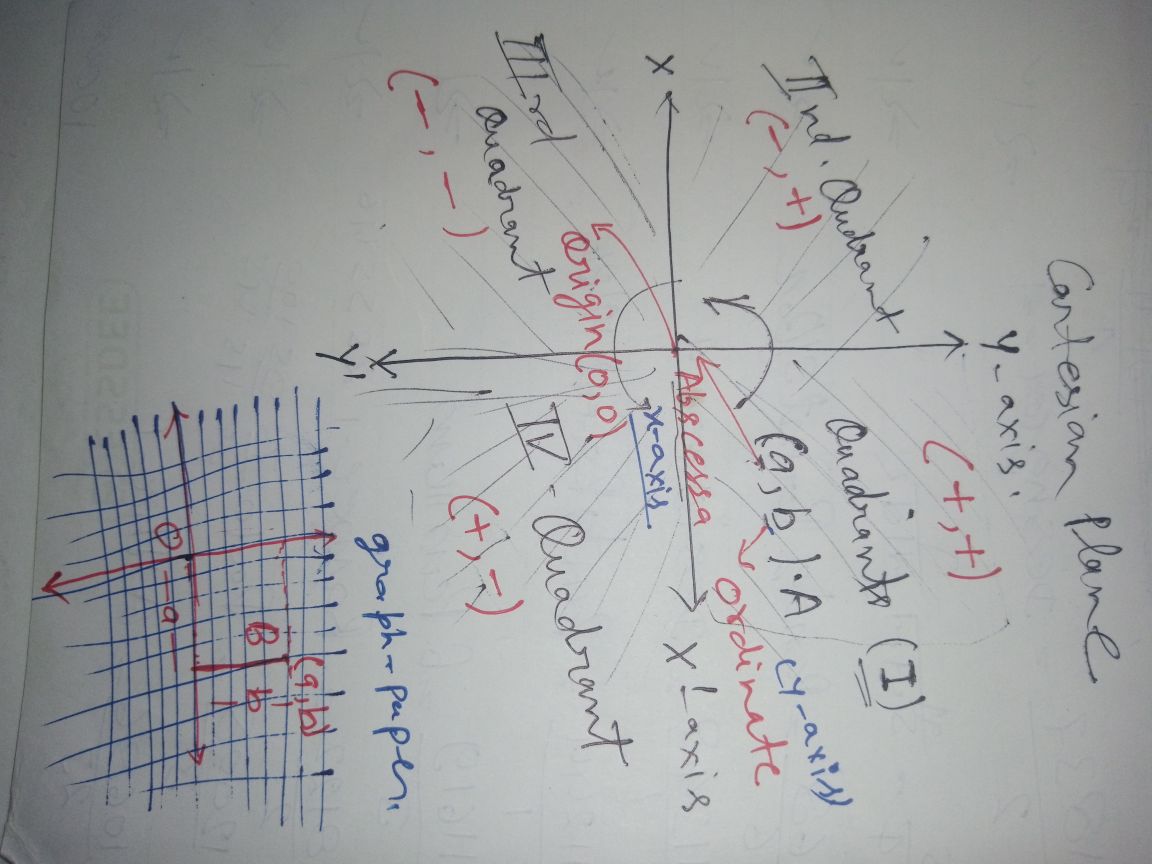 Cartesian Plane
Y-axis.
(+,+)
IInd. Qudrant
(-,+)
Quadrants (I)
(a,b).A
ordinate
(Y-axis)
X
X'-axis
Abscessa
x-axis
Origin(0,0)
IIIrd
Quadrant
(-,-)
IV - Quadrant
(+,-)
Y'
graph-paper,
(a,b)
B
b
O
-a-